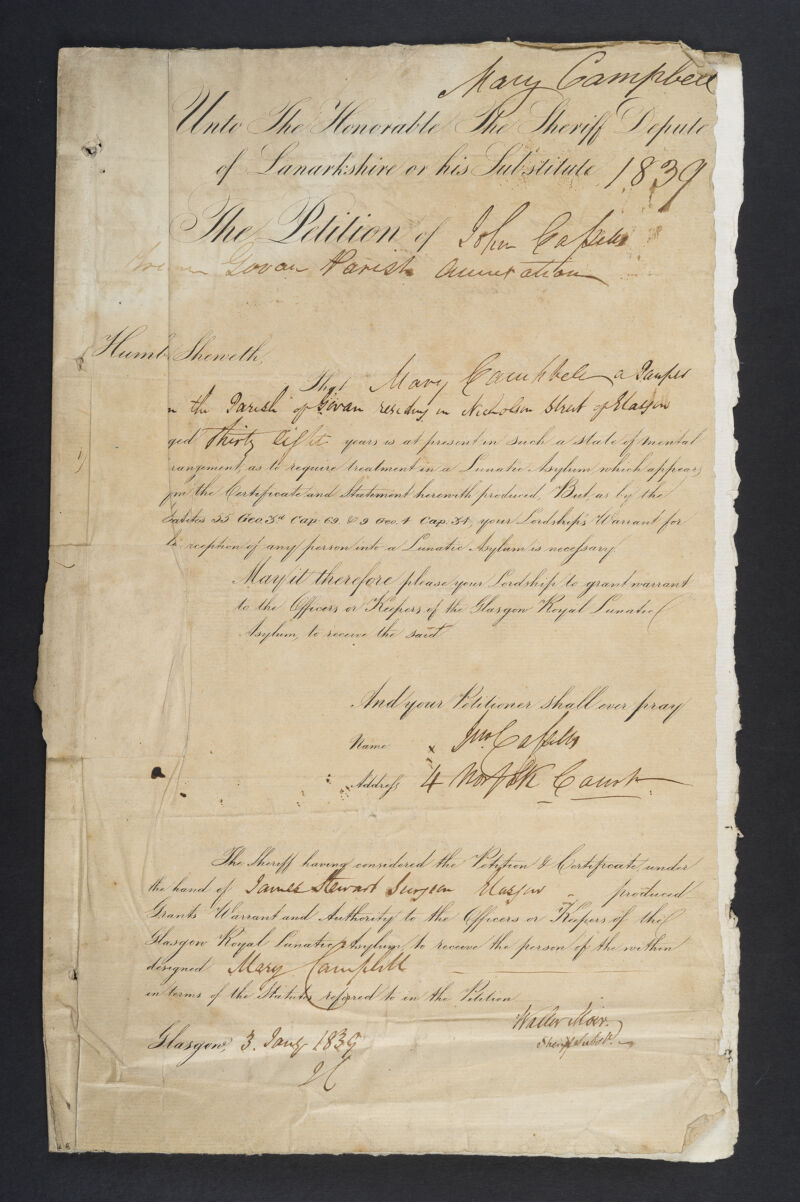 Mary Campbell
Unto The Honorable The Sheriff Depute
of Lanarkshire or his Substitute 1839
The Petition of John Cassells
Govan Parish
Humb Sheweth,
That Mary Campbell a Pauper
in the Parish of Govan residing in Nicholson Street of Glasgow
ged thirty eight years is at present in such a state of mental
rangement, as to require treatment in a Lunatic Asylum, which appears
the Certificate and Statement herewith produced. But, as by the
tatutes 55 Geo. 3rd Cap. 69. & 9 Geo. 4 Cap. 34, your Lordship's Warrant for
reception of any person into a Lunatic Asylum is necessary
May it therefore please your Lordship to grant warrant
to the Officers or Keepers of the Glasgow Royal Lunatic
Asylum, to receive the said
And your Petitioner shall ever pray
Name Jno. Cassells
Address 4 Norfolk Court
The Sheriff having considered the Petition & Certificate, under
the hand of James Stewart Surgeon Glasgow produced
Grants Warrant and Authority to the Officers or Keepers of the
Glasgow Royal Lunatic Asylum, to receive the person of the within
designed Mary Campbell
in terms of the Statutes referred to in the Petition
Walter Moir.
Sheriff Subst.
Glasgow, 3. Jany 1839